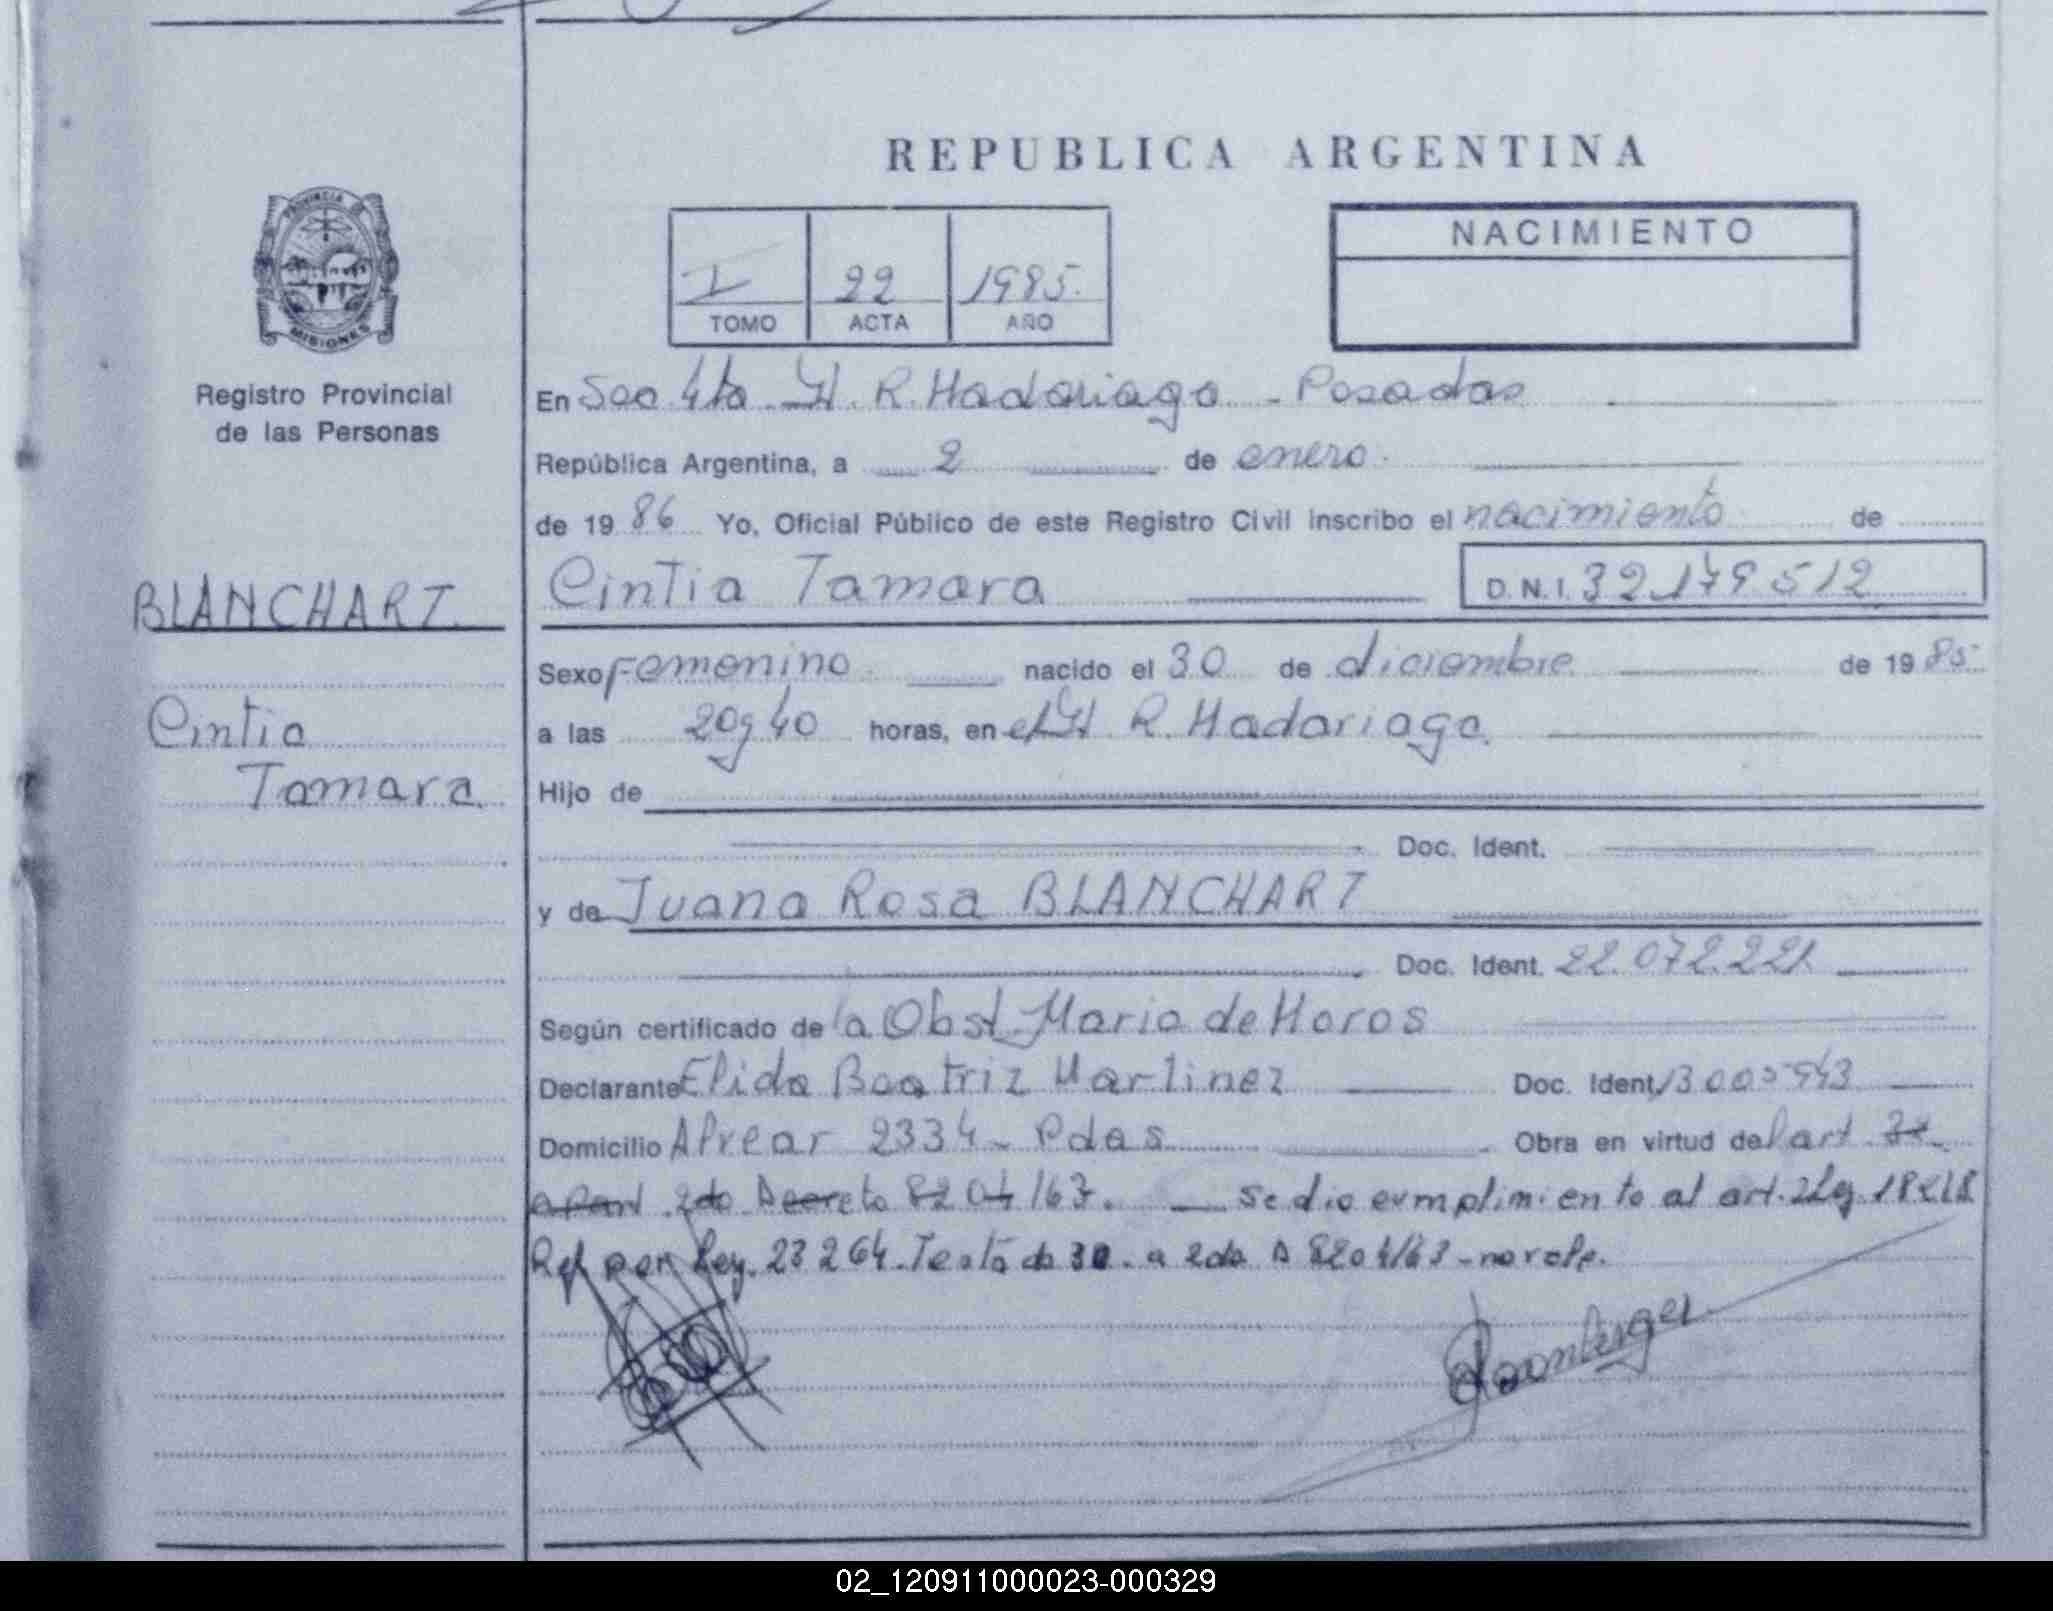 REPUBLICA ARGENTINA
NACIMIENTO
I 22 1985.
TOMO ACTA AÑO
PROVINCIA DE
MISIONES
Registro Provincial
de las Personas
En Sec 4ta H. R. Madariaga - Posadas
República Argentina, a 2 de enero.
de 19 86 Yo, Oficial Público de este Registro Civil inscribo el nacimiento de
Cintia Tamara D.N.I. 32.179.512
BLANCHART.
Cintia
Tamara
Sexo Femenino nacido el 30 de diciembre de 19 85
a las 20 y 40 horas, en el H. R. Madariaga.
Hijo de
Doc. Ident.
y de Juana Rosa BLANCHART
Doc. Ident. 22.072.221
Según certificado de la Obst. Maria de Horos
Declarante Elida Beatriz Martinez Doc. Ident. 13005943
Domicilio Alvear 2334 - Pdas Obra en virtud del art
2do Decreto 8204/63. Se dio cumplimiento al art. 2 Ley 18248
Ref por Ley. 23264. Testado 30 - a 2do D 8204/63 - no vale.
02_120911000023-000329